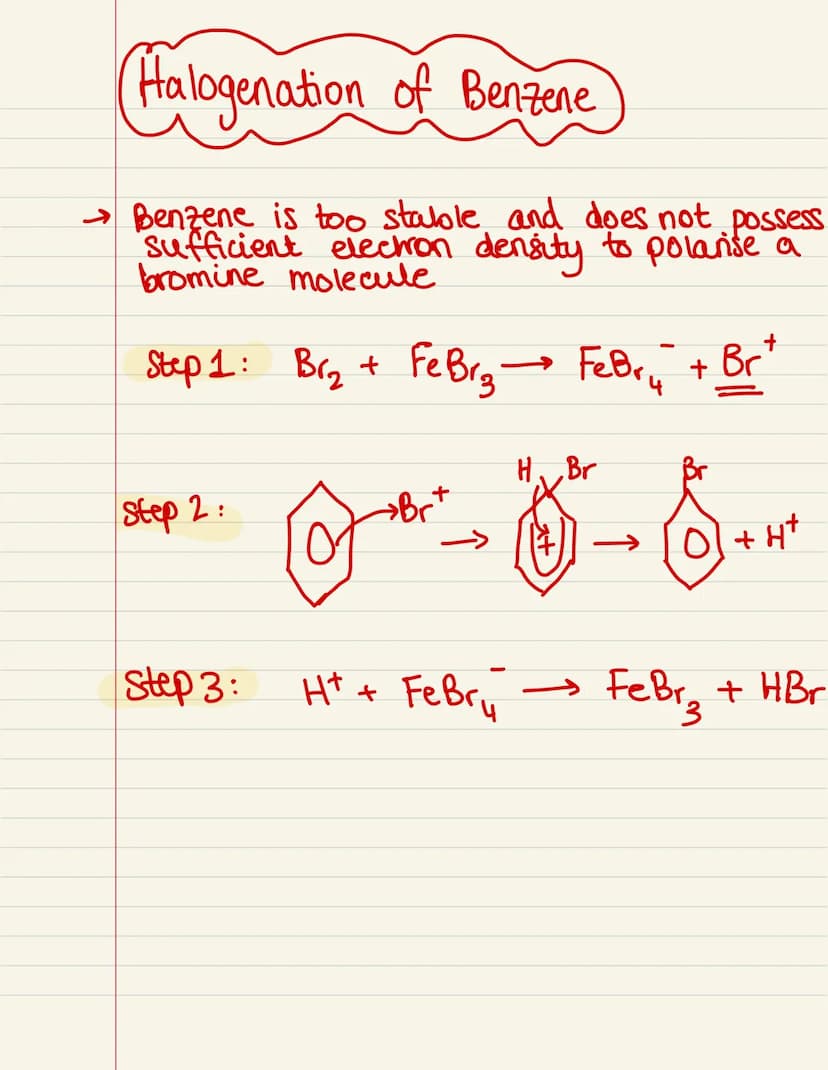 Halogenation of Benzene
→ Benzene is too stable and does not possess
sufficient electron density to polarise a
bromine molecule
Step 1: Br₂ + FeBr₃ → FeBr₄⁻ + Br⁺
H Br Br
Step 2: Br⁺ → + → + H⁺
Step 3: H⁺ + FeBr₄⁻ → FeBr₃ + HBr